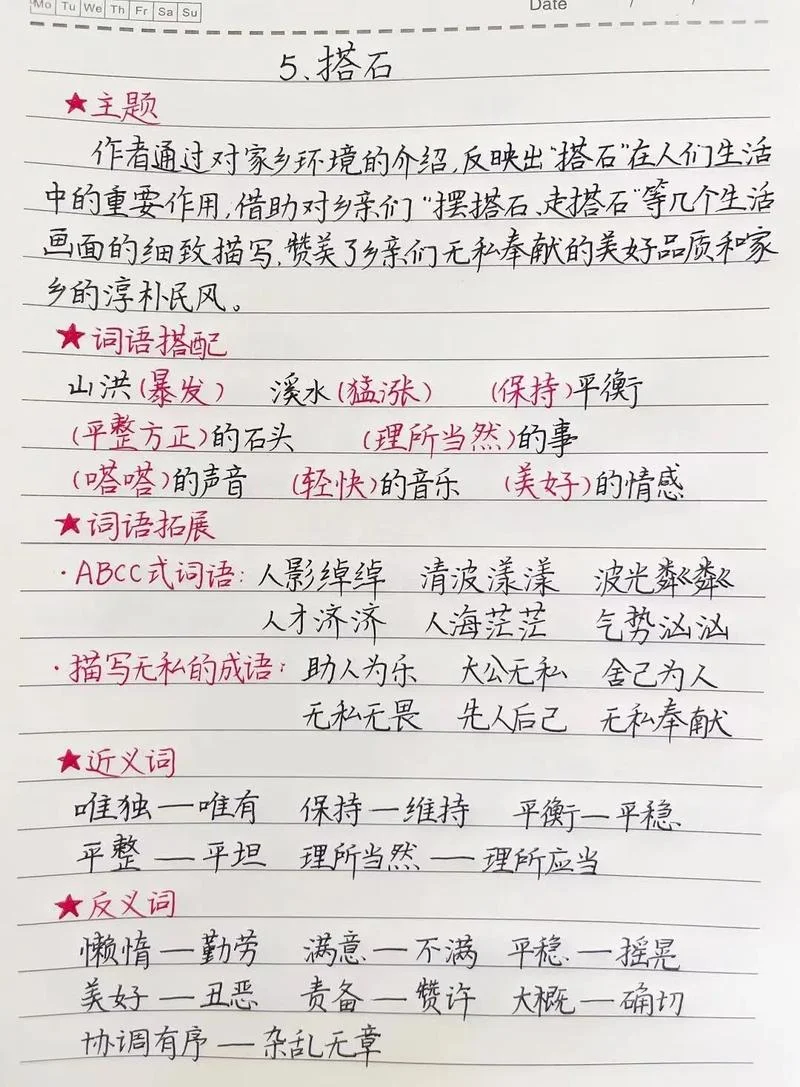 Mo Tu We Th Fr Sa Su
Date / /
5、搭石
★主题
作者通过对家乡环境的介绍,反映出“搭石”在人们生活
中的重要作用,借助对乡亲们“摆搭石、走搭石”等几个生活
画面的细致描写,赞美了乡亲们无私奉献的美好品质和家
乡的淳朴民风。
★词语搭配
山洪(暴发) 溪水(猛涨) (保持)平衡
(平整方正)的石头 (理所当然)的事
(嗒嗒)的声音 (轻快)的音乐 (美好)的情感
★词语拓展
·ABCC式词语:人影绰绰 清波漾漾 波光粼粼
人才济济 人海茫茫 气势汹汹
·描写无私的成语:助人为乐 大公无私 舍己为人
无私无畏 先人后己 无私奉献
★近义词
唯独—唯有 保持—维持 平衡—平稳
平整—平坦 理所当然—理所应当
★反义词
懒惰—勤劳 满意—不满 平稳—摇晃
美好—丑恶 责备—赞许 大概—确切
协调有序—杂乱无章